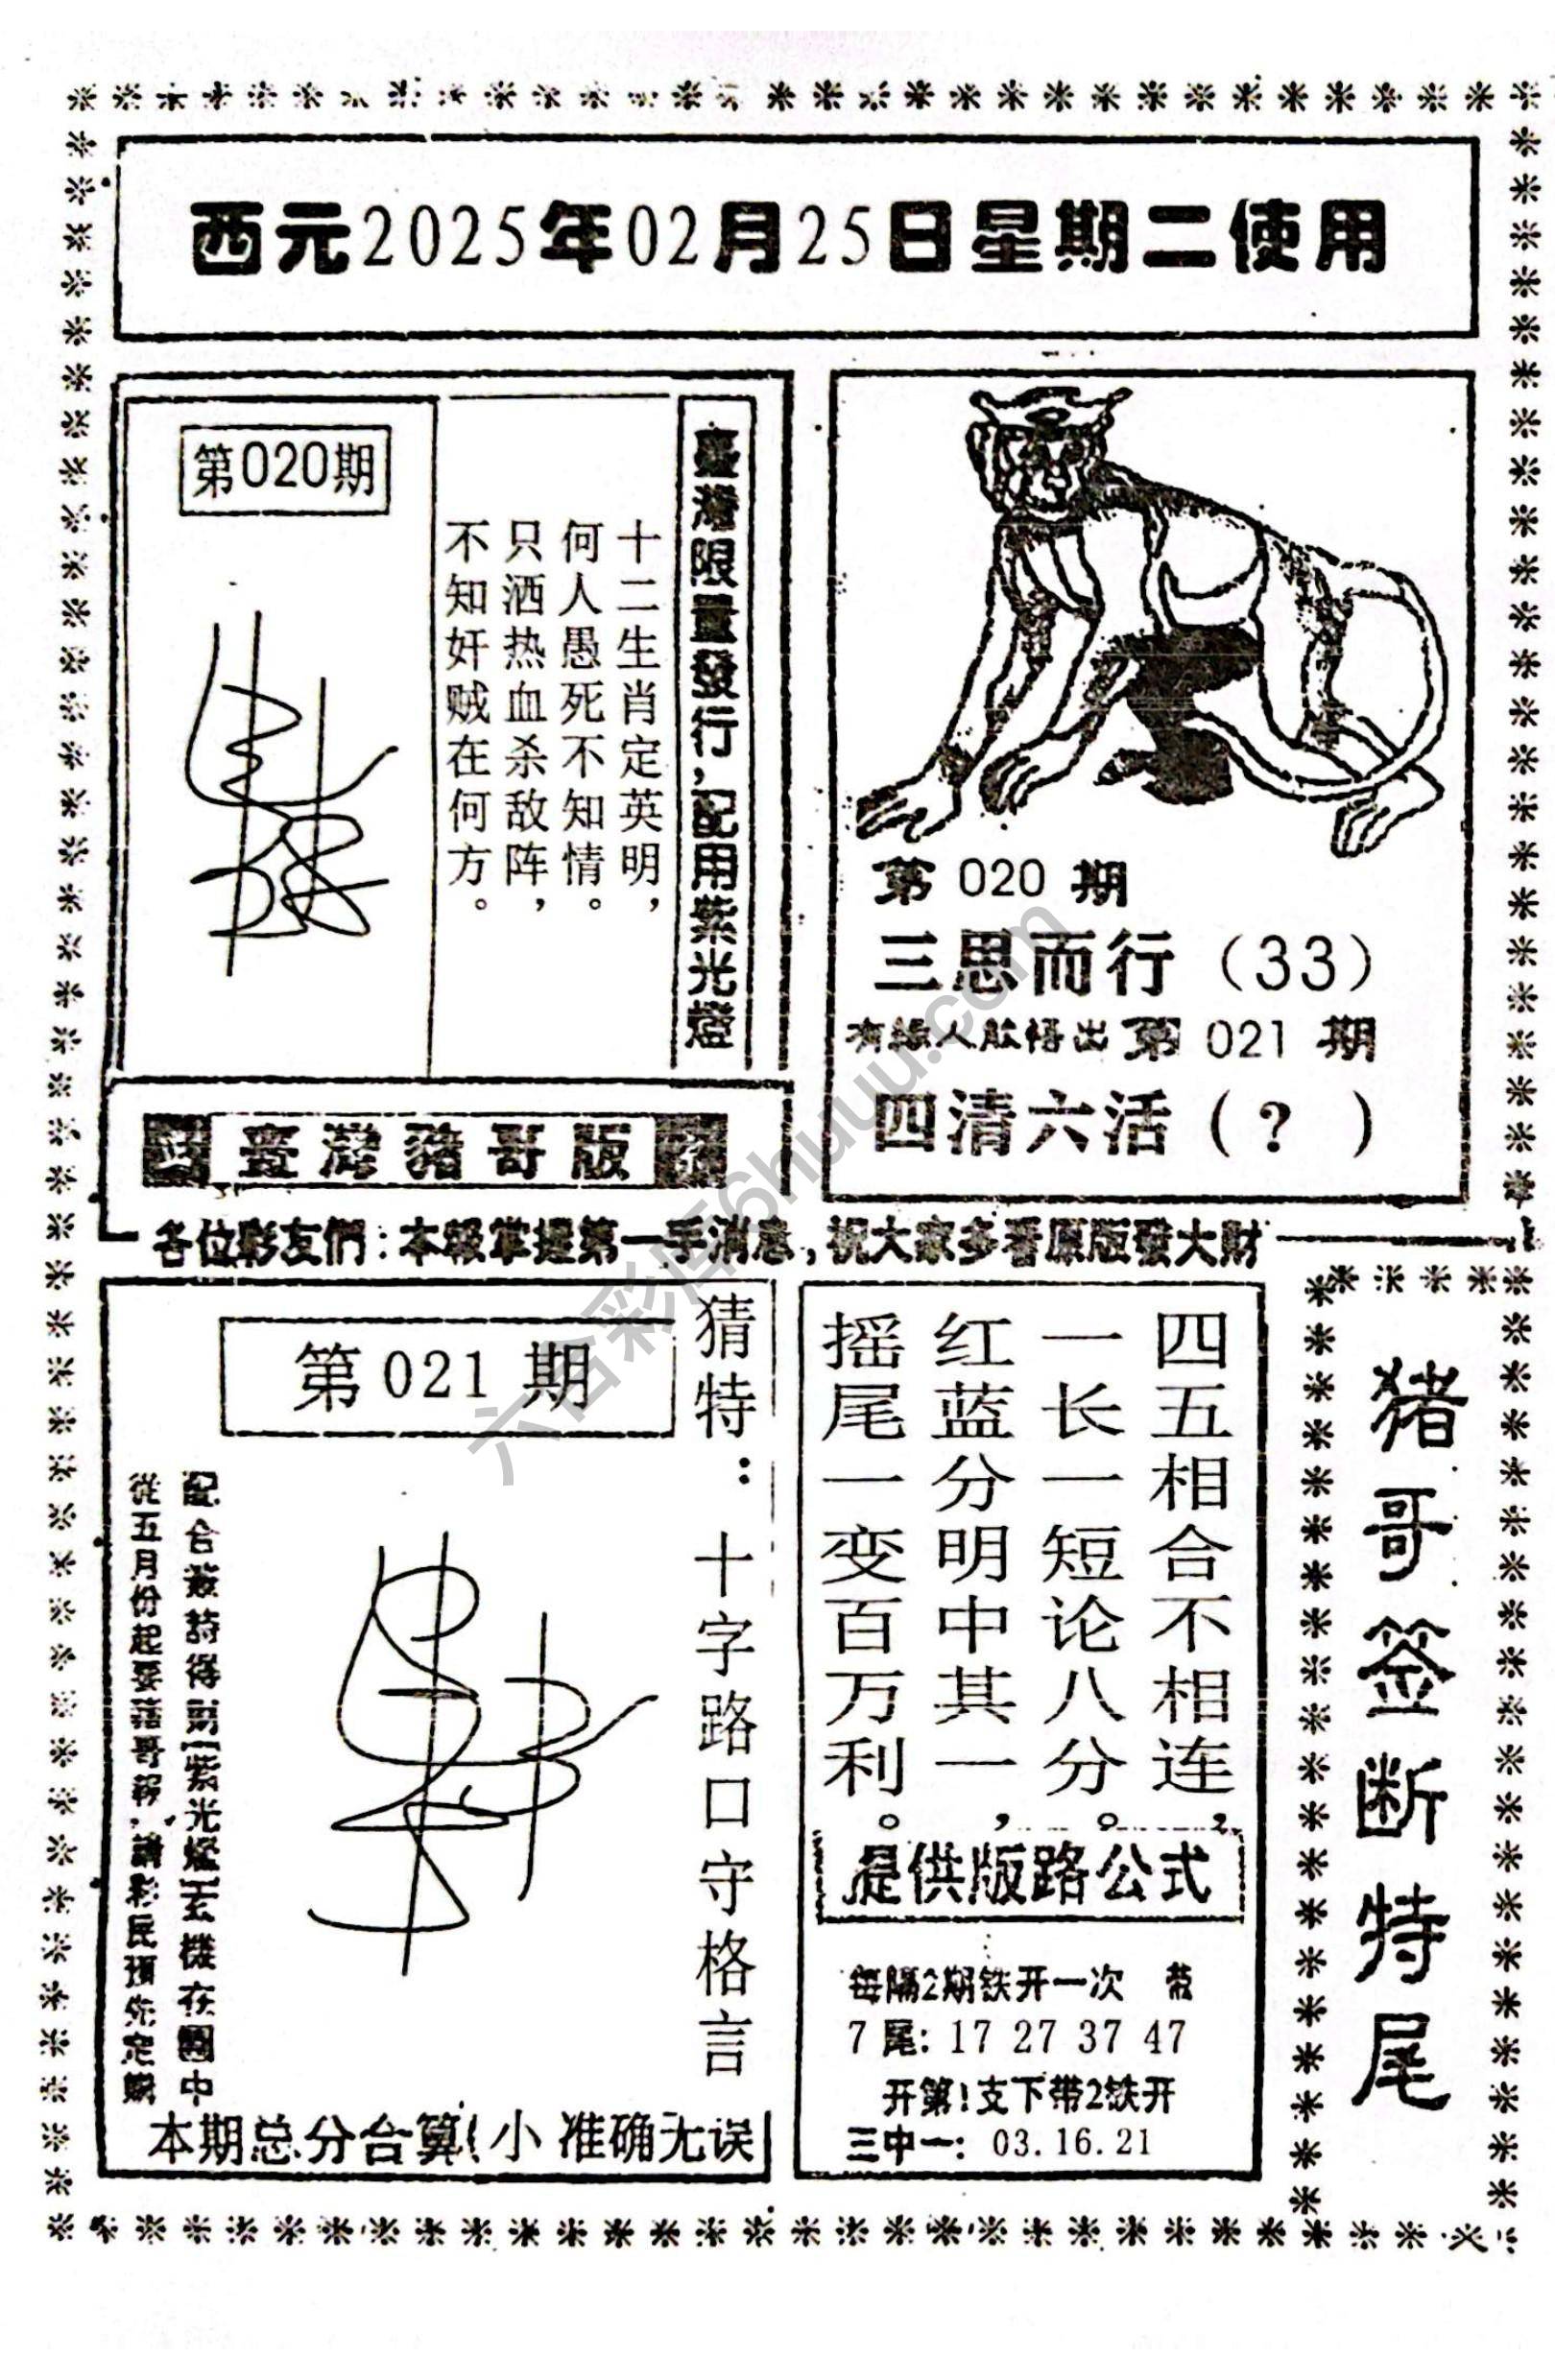 西元2025年02月25日星期二使用
第020期
臺灣限量發行，配用紫光燈
十二生肖定英明，
何人愚死不知情。
只洒热血杀敌阵，
不知奸贼在何方。
第 020 期
三思而行（33）
有缘人能悟出 第 021 期
四清六活（? ）
臺灣豬哥版
各位彩友們：本報掌握第一手消息，祝大家多看原版發大財
第 021 期
猜特：十字路口守格言
配合簽詩得財[紫光燈]玄機在圖中
從五月份起要豬哥報，請彩民預先定購
本期总分合算(小 准确无误
四五相合不相连，
一长一短论八分。
红蓝分明中其一，
摇尾一变百万利。
提供版路公式
每隔2期铁开一次
7 尾: 17 27 37 47
开第1支下带2铁开
三中一: 03.16.21
猪哥签断特尾
六合彩库6huuu.com